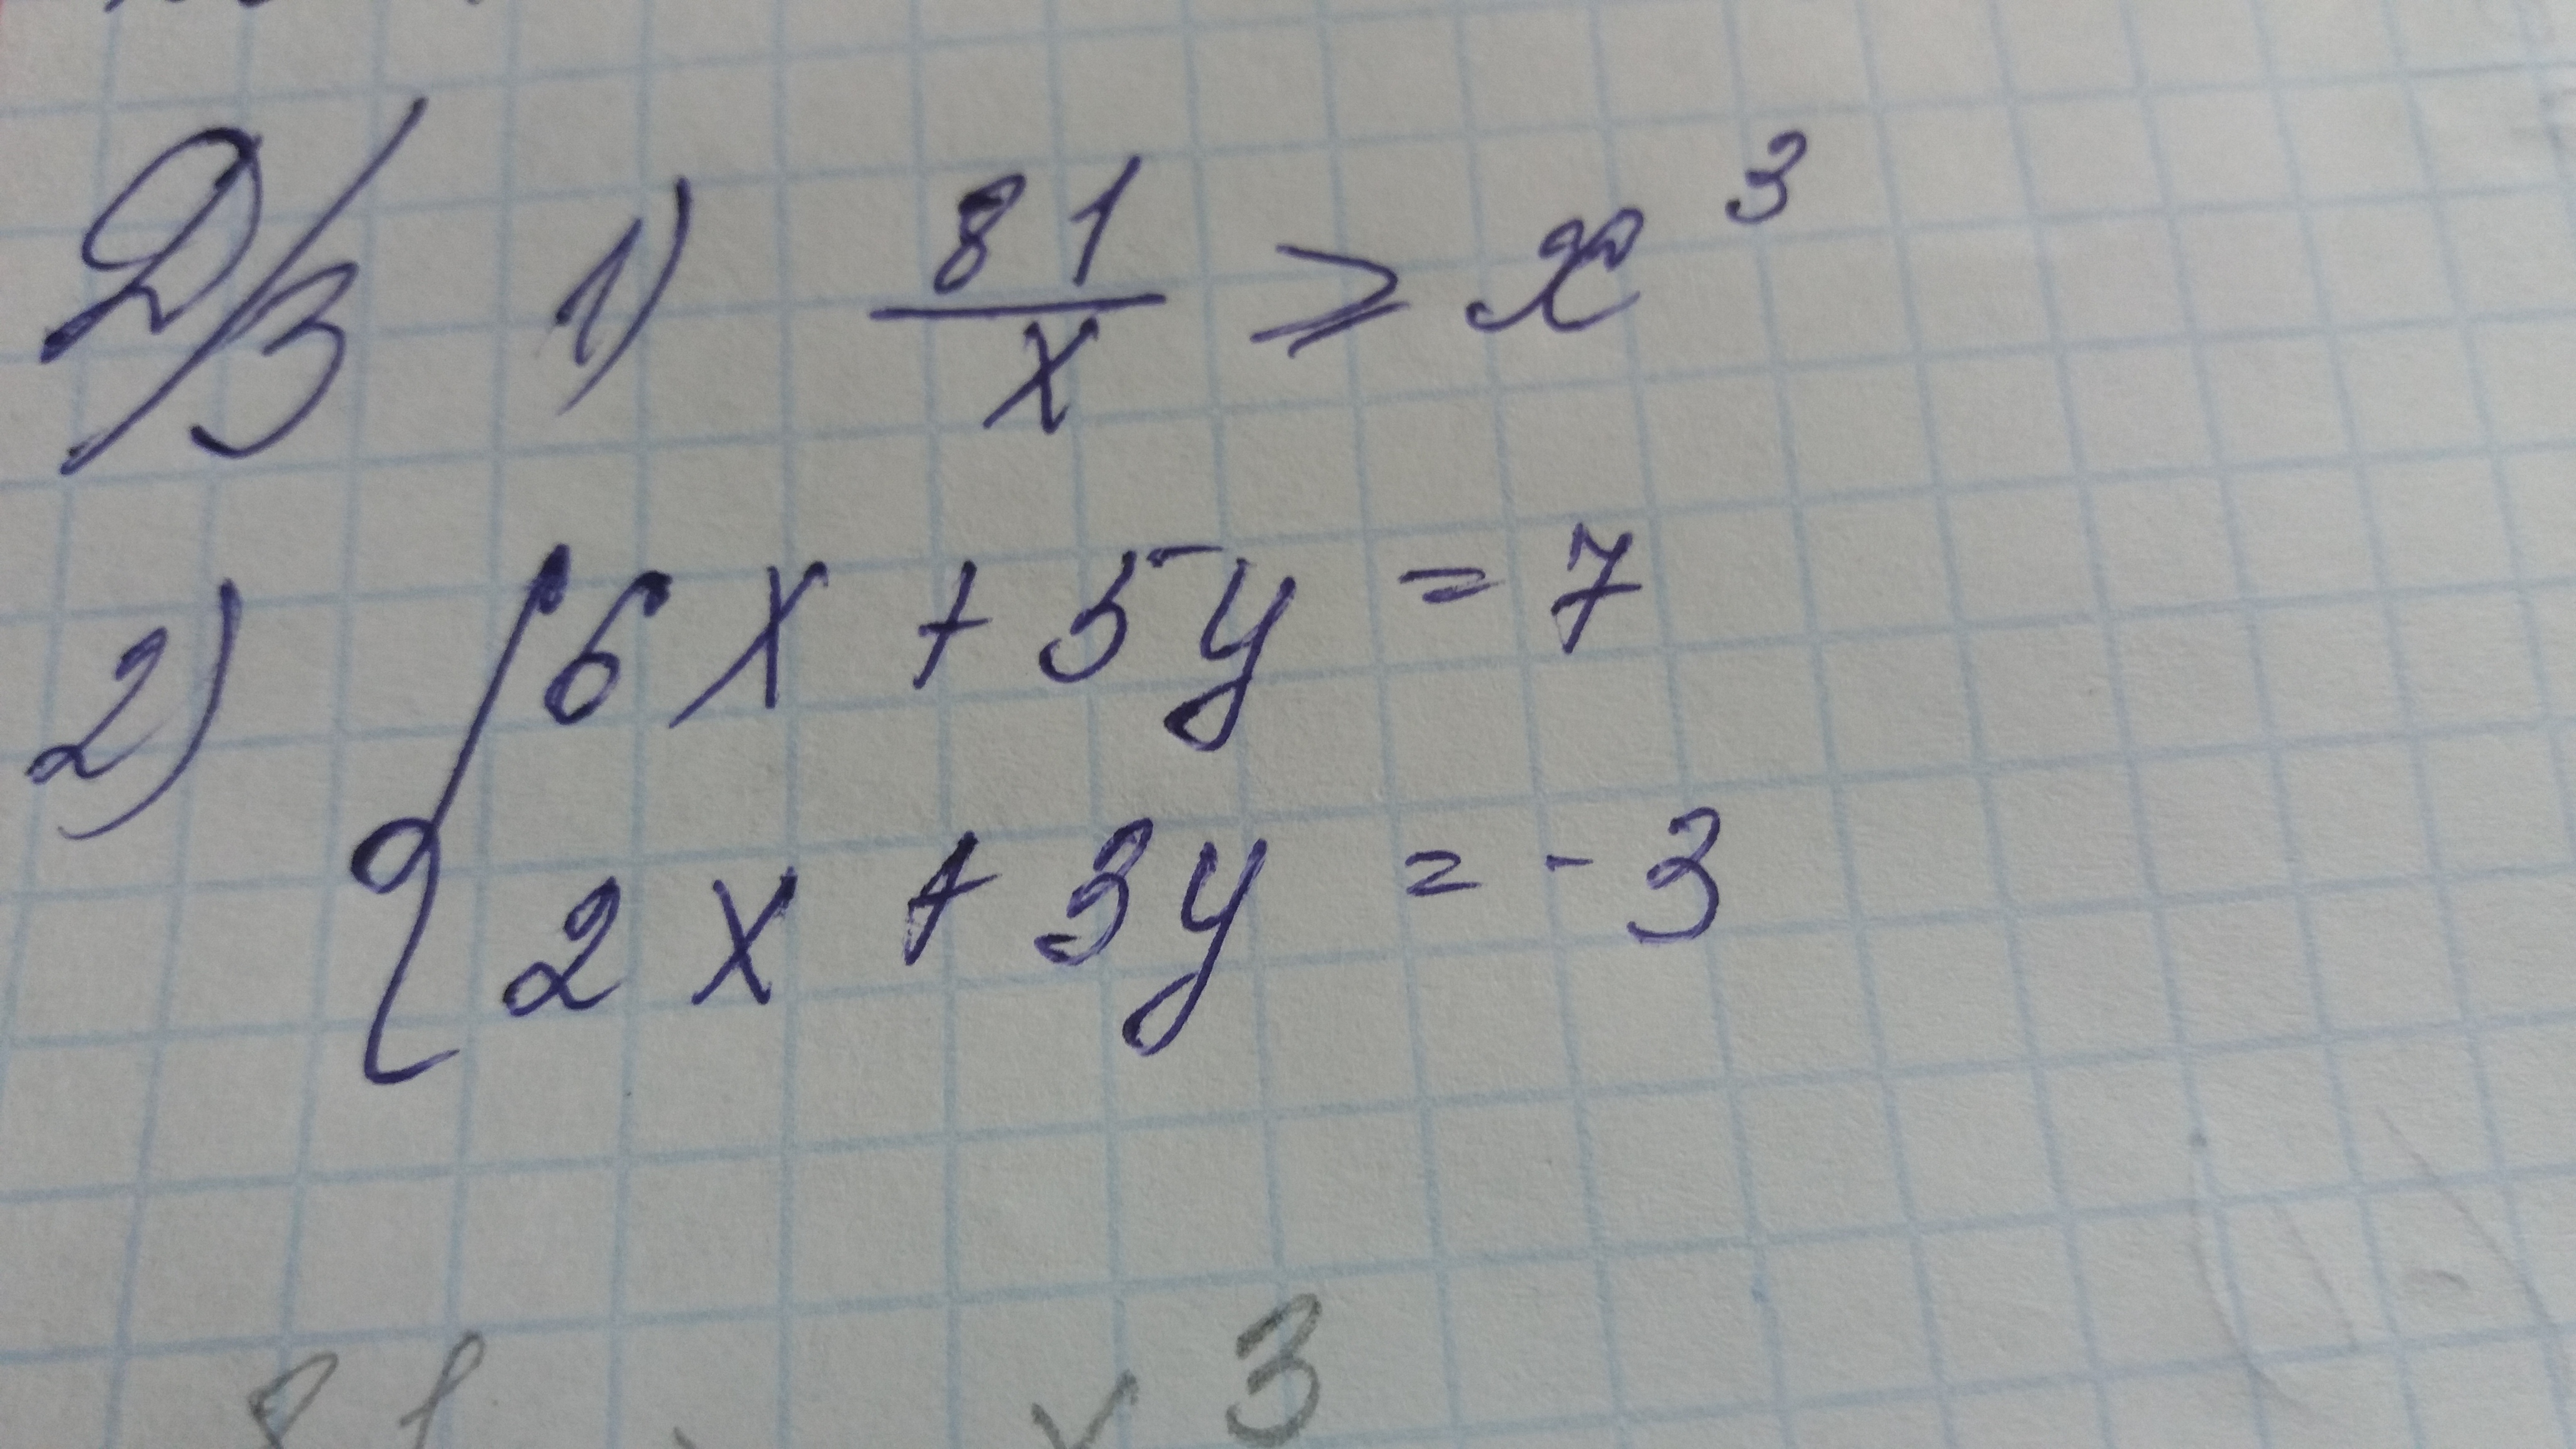 Д/З 1) 81/x ⩾ x³
2) { 6x + 5y = 7
2x + 3y = -3
81 x 3